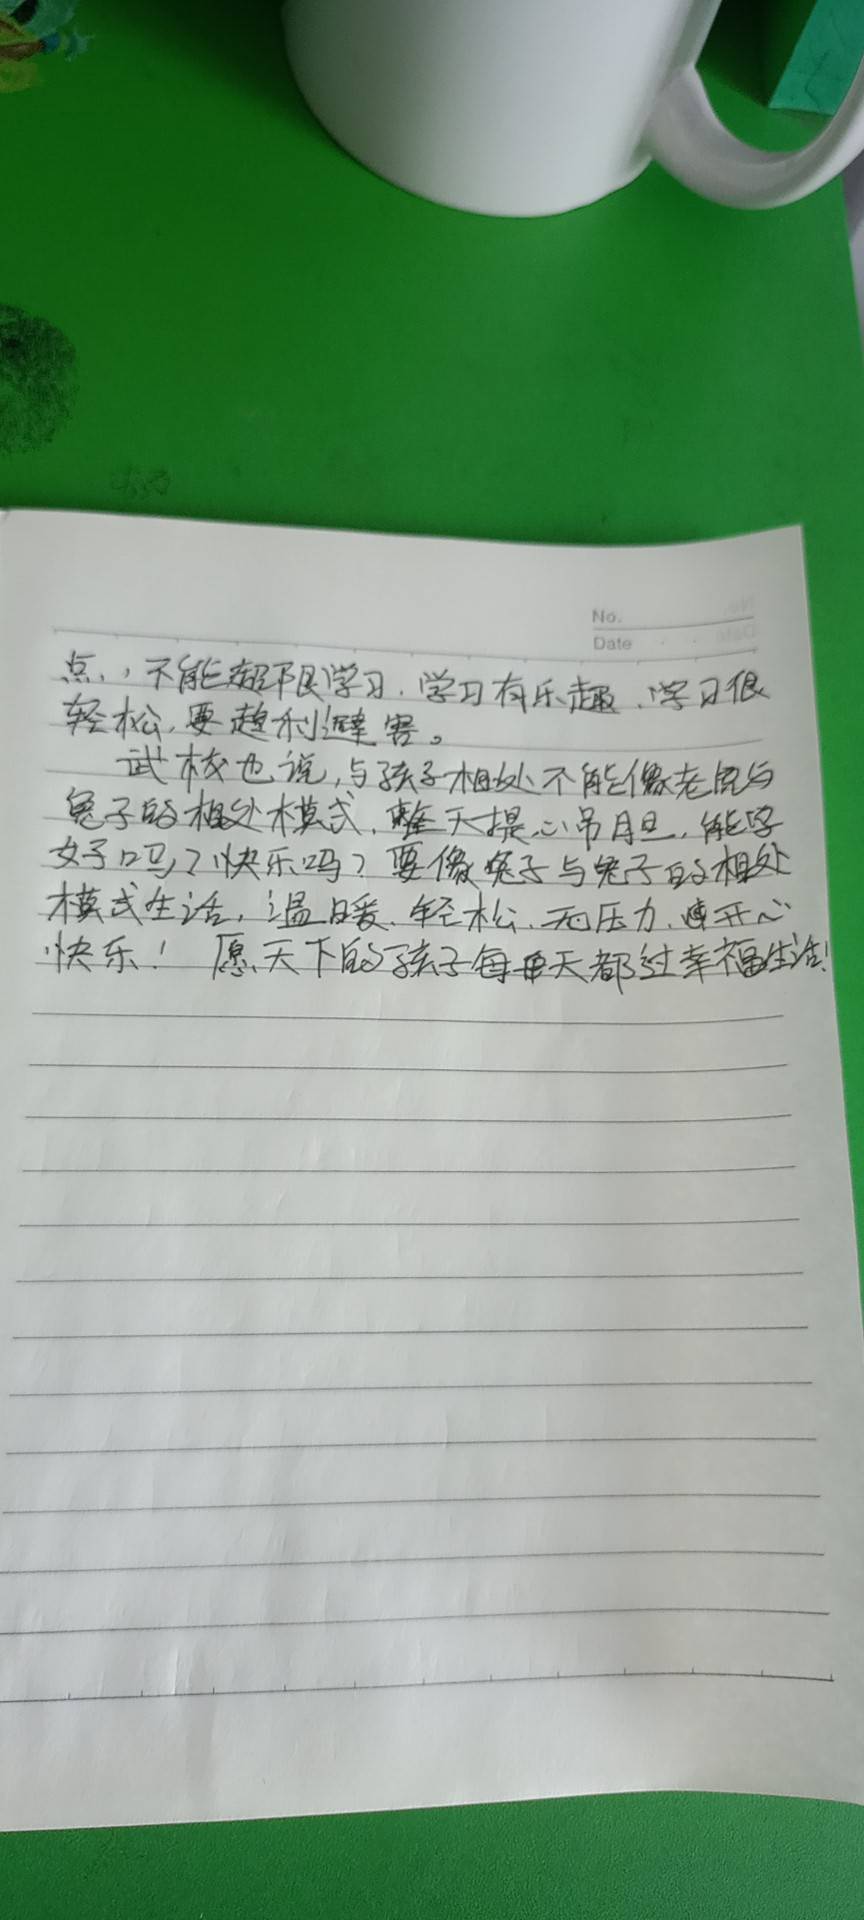 No.
Date
点,,不能超限学习.学习有乐趣、学习很
轻松,要趋利避害。
武校也说,与孩子相处不能像老鼠与
兔子的相处模式,整天提心吊胆,能学
好吗?快乐吗?要像兔子与兔子的相处
模式生活,温暖、轻松、无压力、开心
快乐!愿天下的孩子每天都过幸福生活!